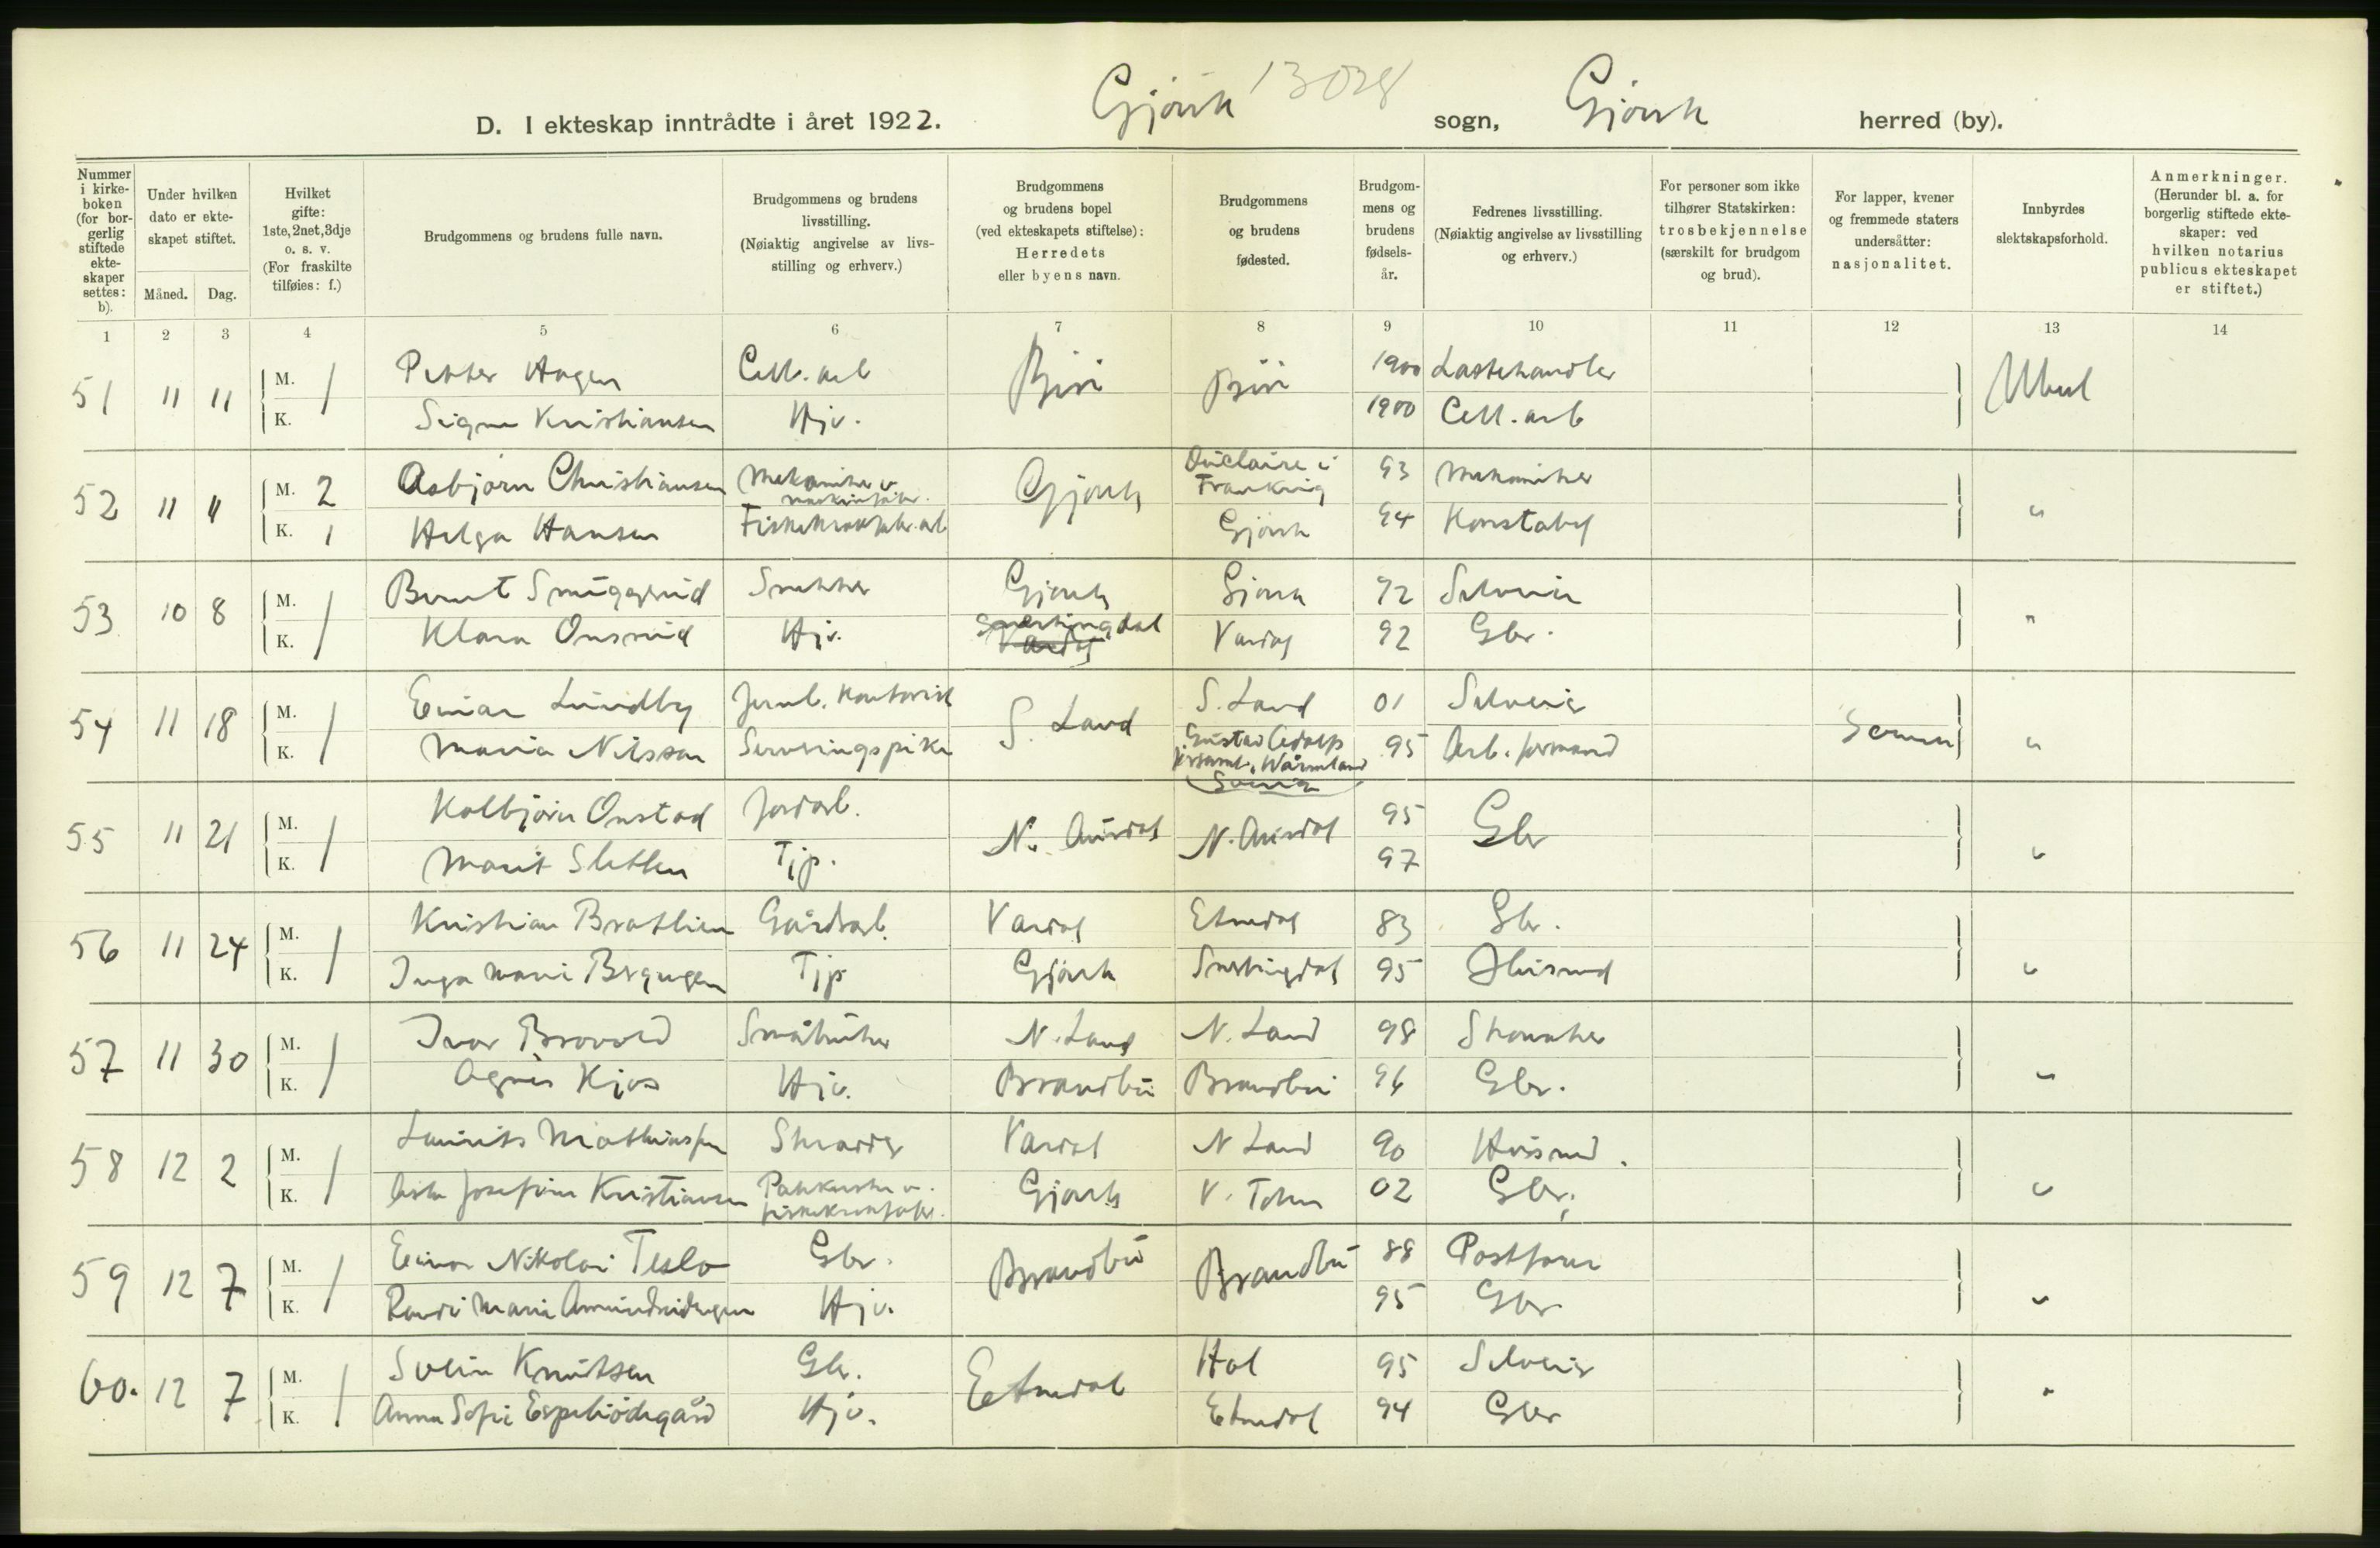 Gjövik 13028 Gjövik
D. I ekteskap inntrådte i året 1922. sogn, herred (by).
Nummer i kirkeboken (for borgerlig stiftede ekteskaper settes: b).
Under hvilken dato er ekteskapet stiftet.
Måned. Dag.
Hvilket gifte: 1ste, 2net, 3dje o. s. v. (For fraskilte tilføies: f.)
Brudgommens og brudens fulle navn.
Brudgommens og brudens livsstilling. (Nøiaktig angivelse av livsstilling og erhverv.)
Brudgommens og brudens bopel (ved ekteskapets stiftelse): Herredets eller byens navn.
Brudgommens og brudens fødested.
Brudgommens og brudens fødselsår.
Fedrenes livsstilling. (Nøiaktig angivelse av livsstilling og erhverv.)
For personer som ikke tilhører Statskirken: trosbekjennelse (særskilt for brudgom og brud).
For lapper, kvener og fremmede staters undersåtter: nasjonalitet.
Innbyrdes slektskapsforhold.
Anmerkninger. (Herunder bl. a. for borgerlig stiftede ekteskaper: ved hvilken notarius publicus ekteskapet er stiftet.)
1 2 3 4 5 6 7 8 9 10 11 12 13 14
51 11 11 M. 1 Petter Hagen Cell. arb Biri Biri 1900 Lastehandler Ubesl
K. Signe Kristiansen Hjv. 1900 Cell. arb
52 11 11 M. 2 Asbjörn Christiansen Mekaniker v. Gjövik Frankrig 93 Mekaniker "
K. 1 Helga Hansen Gjövik 94 Konstabel
53 10 8 M. 1 Bernt Smeggerud Snekker Gjövik Gjövik 92 Selveier "
K. Klara Onsrud Hjv. Snertingdal Vardal Vardal 92 Gbr.
54 11 18 M. 1 Einar Lundby Jernb. kontorist S. Land S. Land 01 Selveier "
K. Maria Nilsson Serveringspike Gustav Adolfs forsaml., Wärmland Sverige 95 Arb. formand Svensk
55 11 21 M. 1 Kolbjörn Onstad Jordarb. N. Aurdal N. Aurdal 95 Gbr "
K. Marit Sletten Tjp. 97
56 11 24 M. 1 Kristian Bratlien Gårdsarb. Vardal Etnedal 83 Gbr. "
K. Inga Marie Tjp. Gjövik Snertingdal 95 Husmand
57 11 30 M. 1 Ivar Brovold Småbruker N. Land N. Land 98 Skomaker "
K. Agnes Kjos Hjv. Brandbu Brandbu 96 Gbr.
58 12 2 M. 1 Lauritz Mathiassen Skrædder Vardal N Land 90 Husmd. "
K. Asta Josefine Kristiansen Pakkerske v. Gjövik V. Toten 02 Gbr.
59 12 7 M. 1 Einar Nikolai Teslo Gbr. Brandbu Brandbu 88 Postförer "
K. Randi Marie Amundrudengen Hjv. 95 Gbr.
60. 12 7 M. 1 Svein Knutsen Gbr. Etnedal Hol 95 Selveier "
K. Anna Sofie Espeliödegård Hjv. Etnedal 94 Gbr